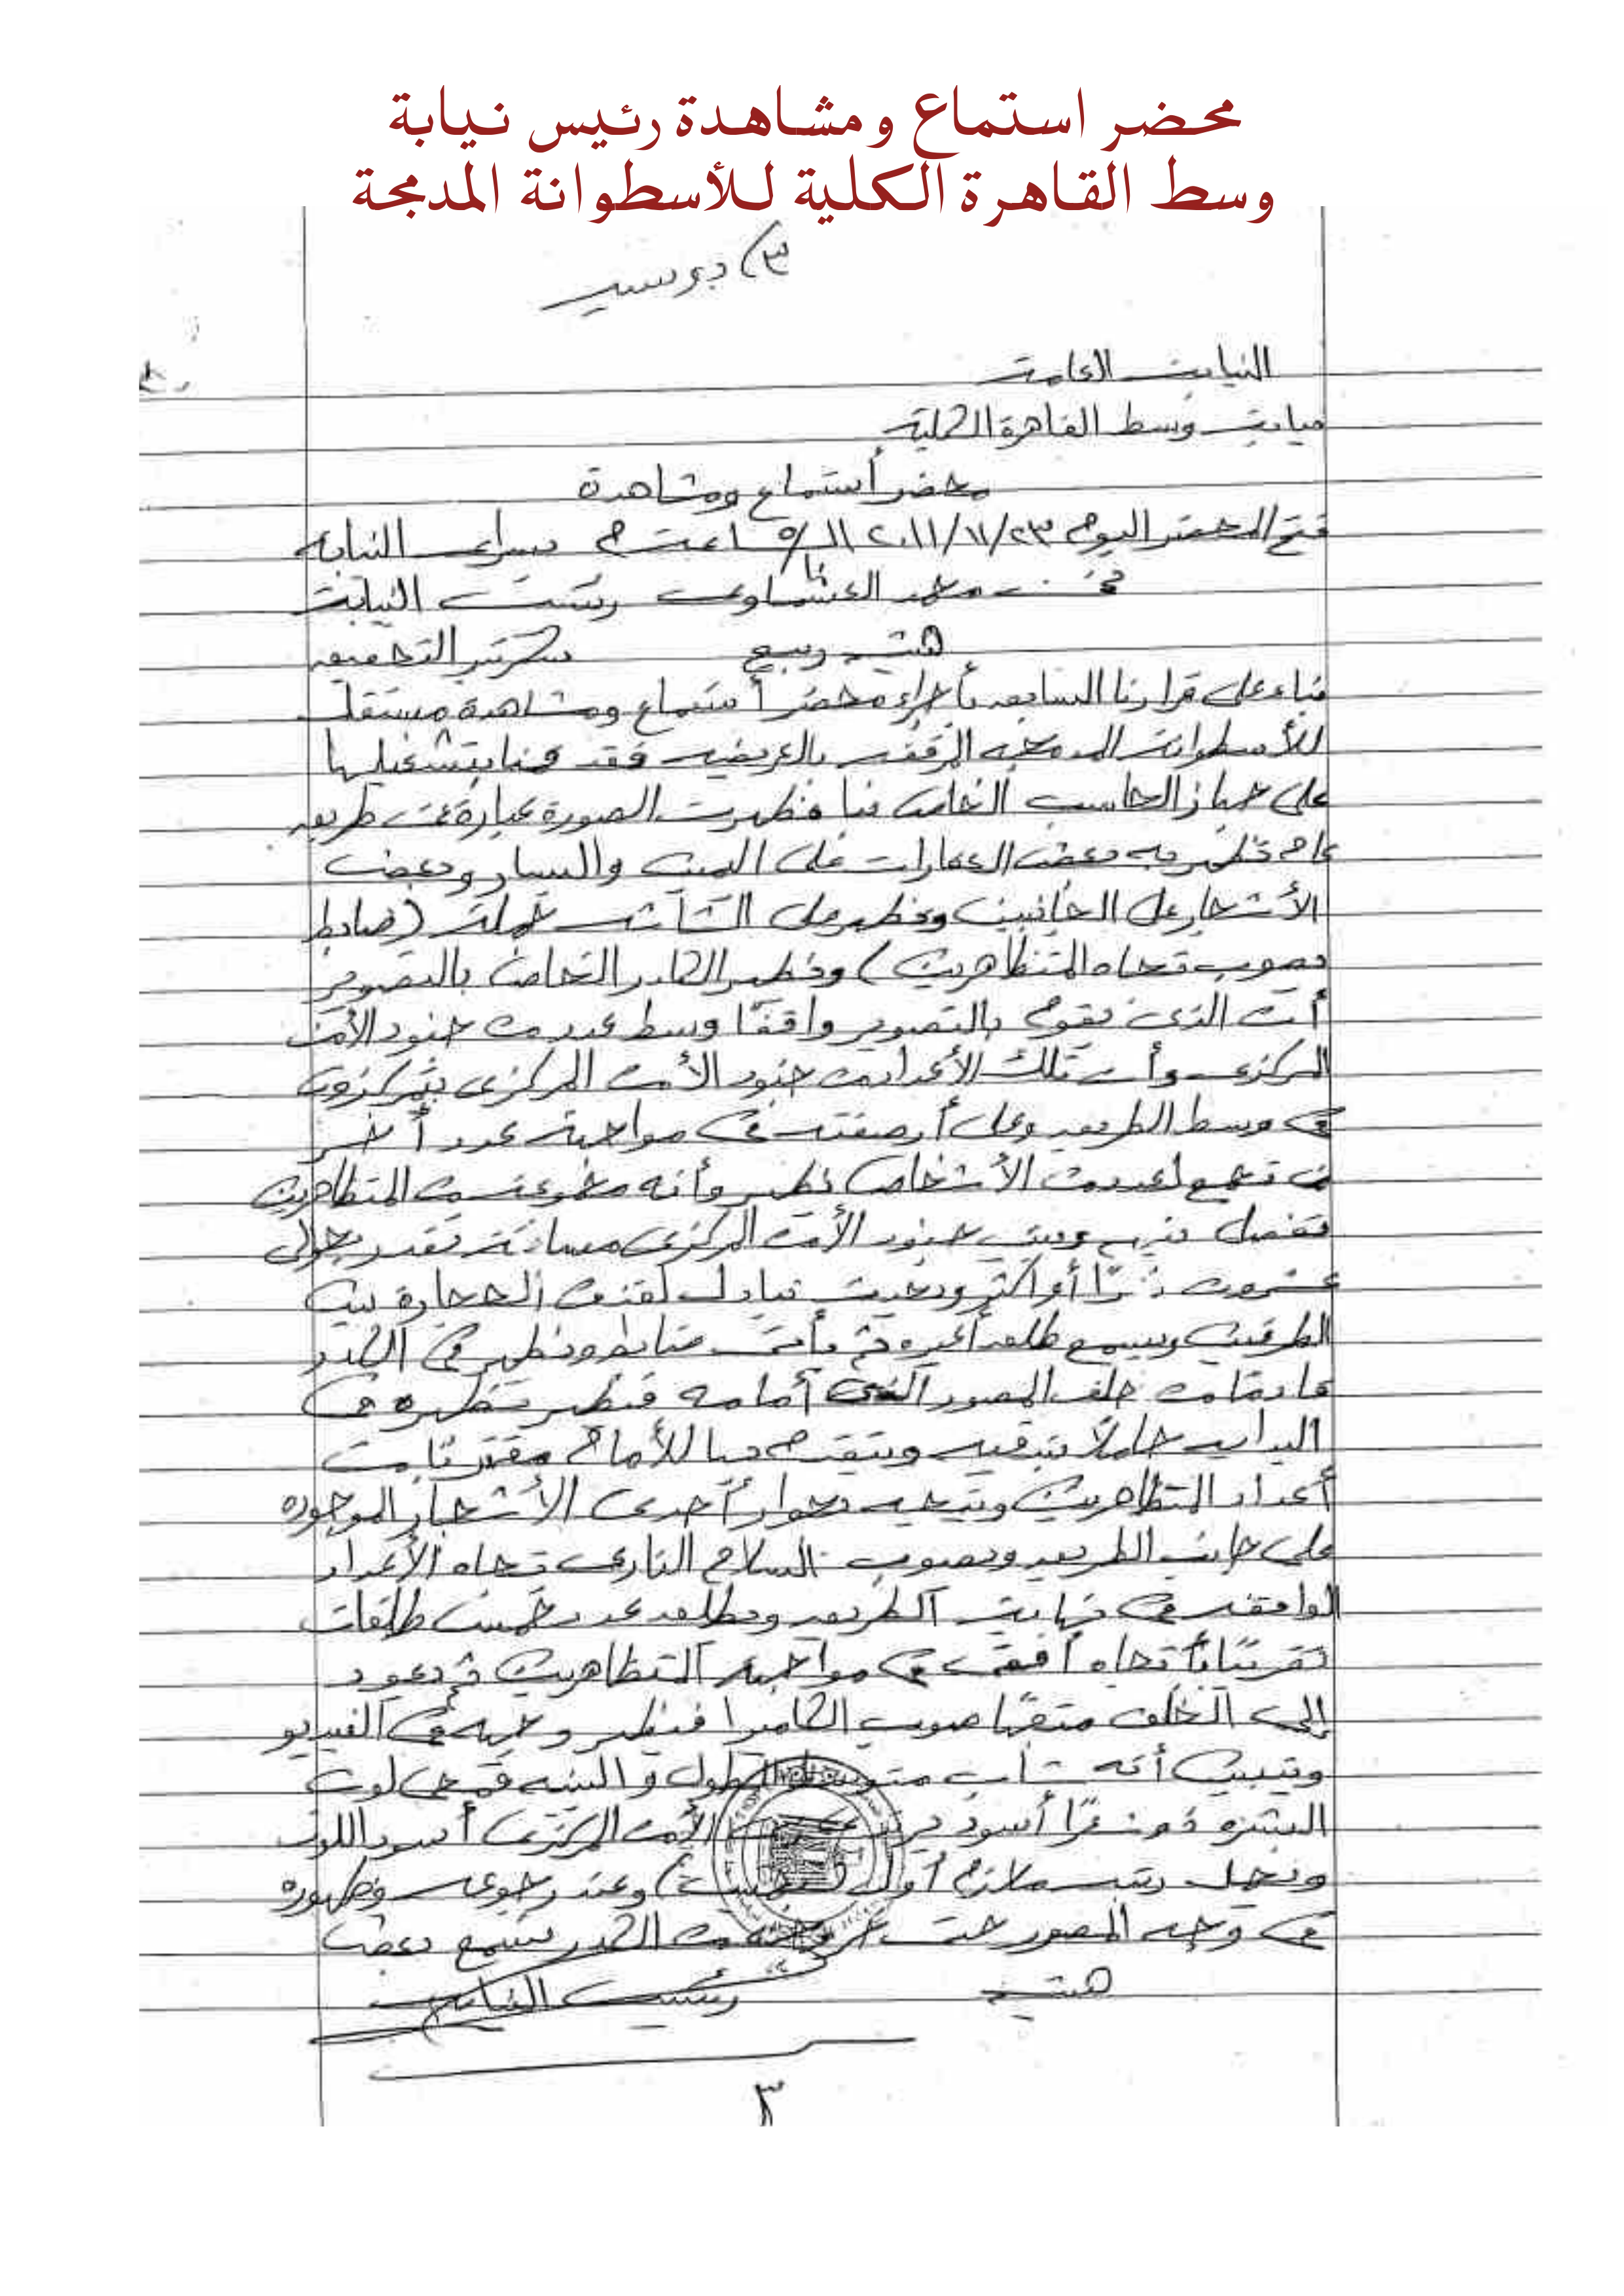 محضر استماع ومشاهدة رئيس نيابة
وسط القاهرة الكلية للأسطوانة المدمجة
٣) دوسيه
النيابة العامة
نيابة وسط القاهرة الكلية
محضر أستماع ومشاهدة
فتح المحضر اليوم ٢٣/١١/٢٠١١ الساعة ٥ م بسراى النيابة
نحن محمد العشماوى رئيس النيابة
هيثم ربيع سكرتير التحقيق
بناء على قرارنا السابق بأجراء محضر أستماع ومشاهدة مستقل
للأسطوانة المدمجه المرفقه بالعريضه فقد قمنا بتشغيلها
على جهاز الحاسب الخاص بنا فظهرت الصورة عبارة عن طريق
عام تظهر به بعض العقارات على اليمين واليسار وبعض
الأشجار على الجانبين وظهر على الشاشة جملة (ضابط
يصوب تجاه المتظاهرين) وظهر الكادر الخاص بالتصوير
أن الذى يقوم بالتصوير واقفًا وسط عدد من جنود الأمن
المركزى وأن تلك الأعداد من جنود الأمن المركزى يتمركزون
فى وسط الطريق وعلى أرصفته فى مواجهة عدد أخر
من تجمع لعدد من الأشخاص يظهر وأنه مجموعة من المتظاهرين
تفصل بينهم وبين جنود الأمن المركزى مسافة تقدر بحوالى
عشرون مترًا أو أكثر وبحيث تبادل لقذف الحجارة بين
الطرفين ويسمع طلق أعيره ثم يأتى ضابط ويظهر فى الكادر
قادمًا من خلف المصور الذى أمامه فيظهر بظهره فى
البداية حاملًا بندقيه ويتقدم بها للأمام مقتربًا من
أعداد المتظاهرين ويتجه بجوار أحدى الأشجار الموجوده
على جانب الطريق ويصوب السلاح النارى تجاه الأعداد
الواقفه فى نهاية الطريق ويطلق عدد خمس طلقات
تقريبًا بأتجاه أفقى فى مواجهة المتظاهرين ثم يعود
إلى الخلف متجهًا صوب الكاميرا فيظهر وجهه فى الفيديو
وتبين أنه شاب متوسط الطول والبنيه قمحى لون
البشره ذو شعرًا أسود يرتدى الأمن المركزى أسود اللون
ويحمل رتبة ملازم أول وعند رجوعه وظهوره
فى وجه المصور حتى خروجه من الكادر يسمع بعض
هيثم رئيس النيابة
٣